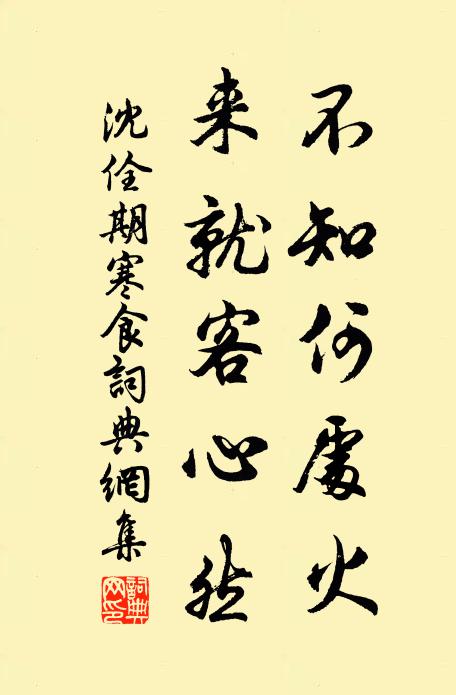 不知何處火
来就客心然
沈佺期寒食詞典網集
詞典网印